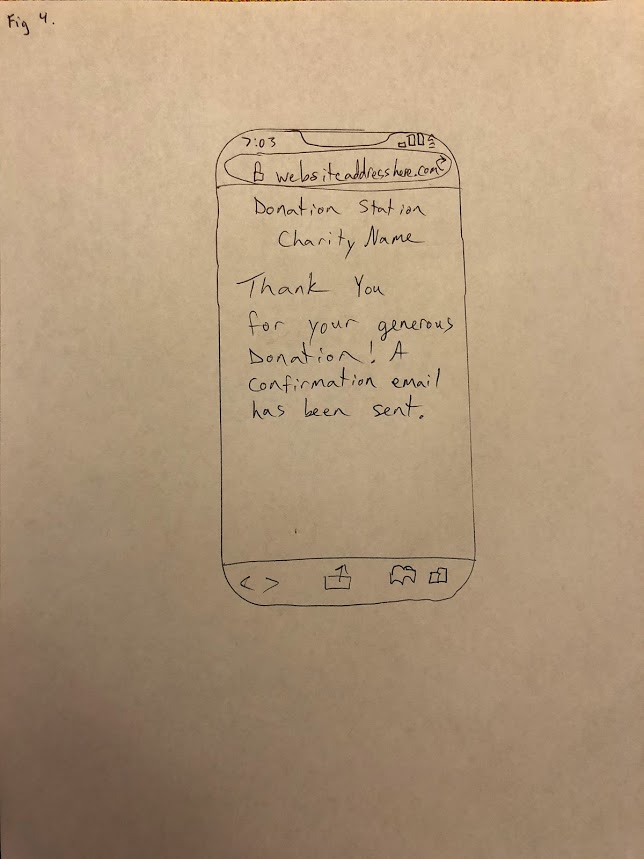 Fig 4.
7:03
websiteaddresshere.com
Donation Station
Charity Name
Thank You
for your generous
Donation! A
confirmation email
has been sent.